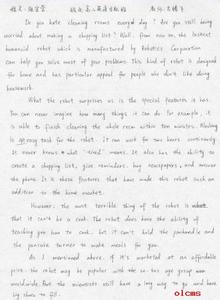 Do you hate cleaning rooms every day? Are you still being
worried about making a shopping list? Well, from now on, the lastest
humanoid robot which is manufactured by Robotics Corporation
can help you solve most of your problems. This kind of robot is designed
for home and has particular appeal for people who don't like doing
housework.
What the robot surprises us is the special features it has.
You can never imagine how many things it can do. for example, it
is able to finish cleaning the whole room within ten minutes. Nothing
is task for the robot. it can work for two hours continually
It never knows what "tired" means. It also has the ability to
create a shopping list, give reminders, buy newspapers, and answer
the phone. It is these features that have made this robot such an
addition to the home market.
However, the most terrible thing of the robot is
that it can't be a cook. The robot does have the ability of
teaching you how to cook, but it can't hold the panhandle and
the pancake turner to make meals for you.
As I mentioned above, if it's marketed at an affordable
price, the robot may be popular with the age group
worldwide. But the scientists still have a long way to go and have
big shoes to fill.
olcms